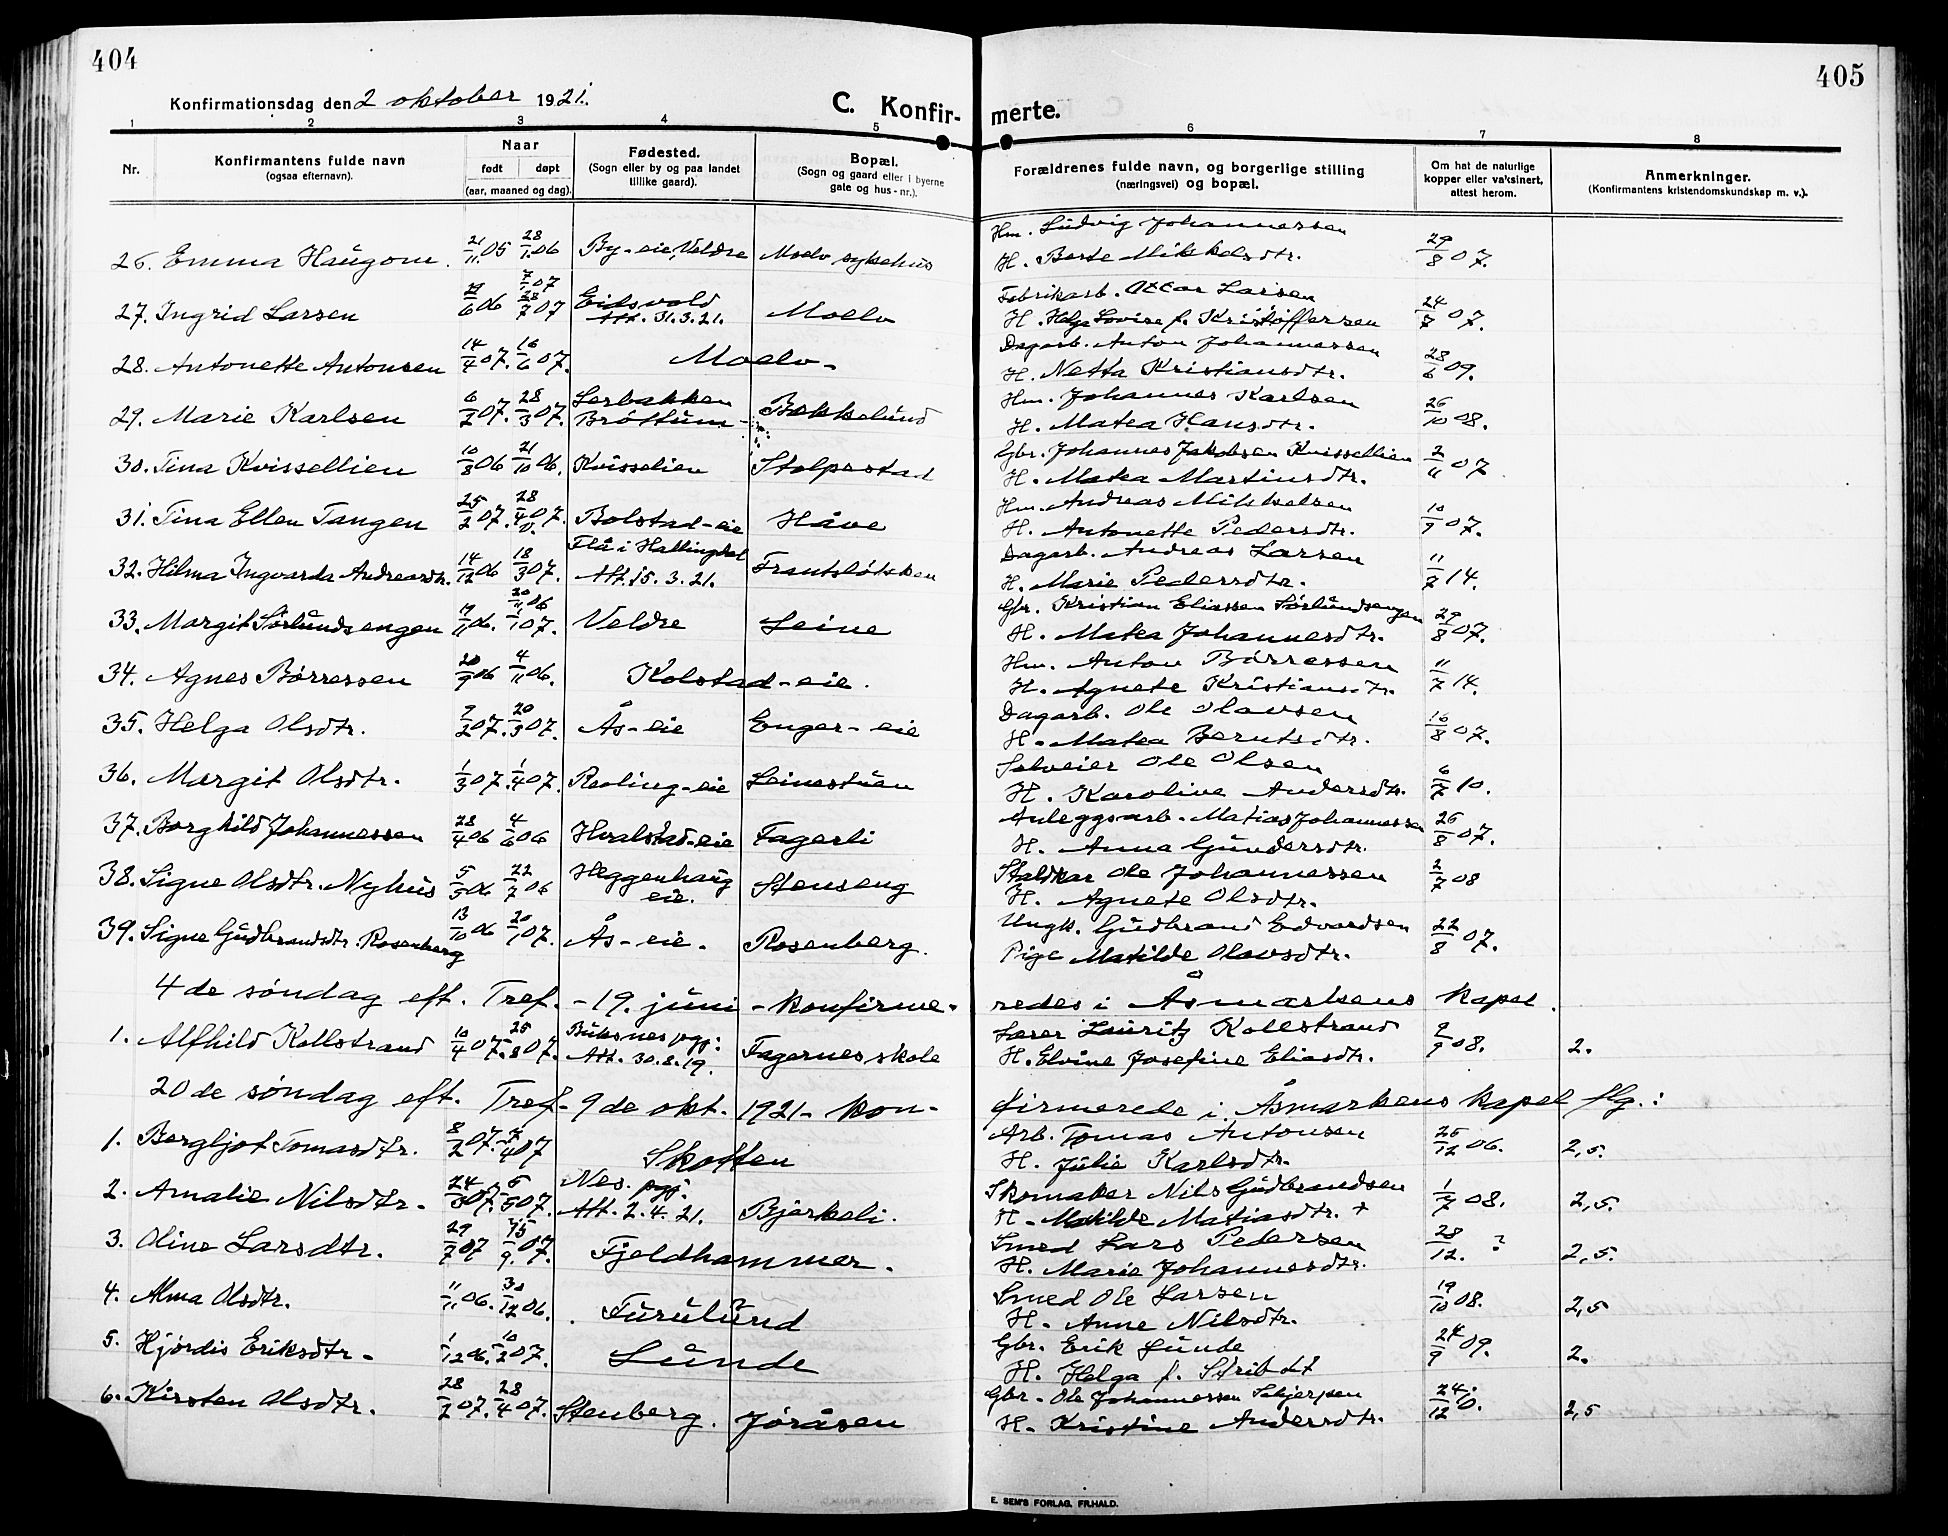 404
405
Konfirmationsdag den 2 oktober 1921.
C. Konfirmerte.
1 2 3 4 5 6 7 8
Nr. Konfirmantens fulde navn (ogsaa efternavn). Naar født døpt (aar, maaned og dag). Fødested. (Sogn eller by og paa landet tillike gaard). Bopæl. (Sogn og gaard eller i byerne gate og hus-nr.). Forældrenes fulde navn, og borgerlige stilling (næringsvei) og bopæl. Om hat de naturlige kopper eller vaksinert, attest herom. Anmerkninger. (Konfirmantens kristendomskundskap m. v.).
26. Emma Haugom. 21/11 05 28/1 06 By-eie, Veldre Moelv sykehus Hm. Ludvig Johannessen 29/8 07.
H. Berte Mikkelsdtr.
27. Ingrid Larsen 29/6 06 7/7 07 28/7 07 Eidsvold Att. 31.3.21. Moelv Fabrikarb. Oscar Larsen 24/7 07.
H. Helga Lovise f. Kristoffersen
28. Antonette Antonsen 14/4 07. 16/6 07. Moelv - Dagarb. Anton Johannessen 28/6 09.
H. Netta Kristiansdtr.
29. Marie Karlsen 6/2 07. 28/3 07. Lerbakken Brøttum - Bekkelund Hm. Johannes Karlsen 26/10 08.
H. Matea Hansdtr.
30. Tina Kvissellien 10/8 06 21/10 06. Kvisselien Stolpestad Gbr. Johannes Jakobsen Kvissellien 2/11 07
H. Matea Martinsdtr.
31. Tina Ellen Tangen 25/2 07. 28/4 07. Bolstad-eie Håve Hm. Andreas Mikkelsen 10/9 07.
H. Antonette Pedersdtr.
32. Hilma Ingvarda Andreasdtr. 14/12 06 18/3 07. Flå i Hallingdal Att. 15.3.21. Frantsløkken Dagarb. Andreas Larsen 11/7 14.
H. Marie Pedersdtr.
33. Margit Sørlundsengen 9/11 06. 20/11 06 1/1 07. Veldre Leine Gbr. Kristian Eliassen Sørlundsengen 29/8 07.
H. Matea Johannesdtr.
34. Agnes Børressen 20/9 06 4/11 06. Kolstad-eie. Hm. Anton Børressen 11/7 14.
H. Agnete Kristiansdtr.
35. Helga Olsdtr. 7/2 07. 20/3 07. Ås-eie Enger-eie Dagarb. Ole Olavsen 16/8 07.
H. Matea Berntsdtr.
36. Margit Olsdtr. 1/3 07. 1/4 07. Reoling-eie Leinestuen Selveier Ole Olsen 6/7 10.
H. Karoline Andersdtr.
37. Borghild Johannessen 28/4 06 4/6 06 Hvalstad-eie Fagerli Anleggsarb. Matias Johannessen 26/8 07.
H. Anna Gundersdtr.
38. Signe Olsdtr. Nyhus 5/5 06 22/7 06 Heggenhaug eie. Stenseng Staldkar Ole Johannessen 2/7 08
H. Agnete Olsdtr.
39. Signe Gudbrandsdtr. Rosenberg 13/10 06 20/1 07. Ås-eie. Rosenberg. Ungk. Gudbrand Edvardsen 22/8 07.
Pige Matilde Olavsdtr.
4de søndag eft. Tref. - 19. juni - konfirmeredes i Åsmarkens kapel.
1. Alfhild Kollstrand 10/4 07. 25/8 07. Buksnes pgj: Att. 30.8.19. Fagernes skole Lærer Lauritz Kollstrand 9/9 08. 2.
H. Elvine Josefine Eliasdtr.
20de søndag eft. Tref - 9de okt. 1921 - konfirmerede i Åsmarkens kapel flg.:
1. Bergljot Tomasdtr. 8/2 07. 7/4 07 Skotten Arb. Tomas Antonsen 25/12 06. 2,5.
H. Julie Karlsdtr.
2. Amalie Nilsdtr. 24/3 07. 5/5 07. Nes. pgj. Att. 2.4.21. Bjørkeli. Skomaker Nils Gudbrandsen 1/7 08. 2,5.
H. Matilde Matiasdtr. +
3. Oline Larsdtr. 29/7 07 15/9 07. Fjeldhammer. Smed Lars Pedersen 28/12. ? 2,5.
H. Marie Johannesdtr.
4. Alma Olsdtr. 11/11 06. 30/12 06. Furulund Smed Ole Larsen 19/10 08. 2,5
H. Anne Nilsdtr.
5. Hjørdis Eriksdtr - 1/12 06. 10/2 07. Lunde Gbr. Erik Lunde 24/9 09. 2.
H. Helga f. Stribolt
6. Kirsten Olsdtr. 28/2 07. 28/4 07. Stenberg. Jøråsen Gbr. Ole Johannessen 24/12 10. 2,5
H. Kristine Andersdtr.
E. SEM'S FORLAG. FR.HALD.